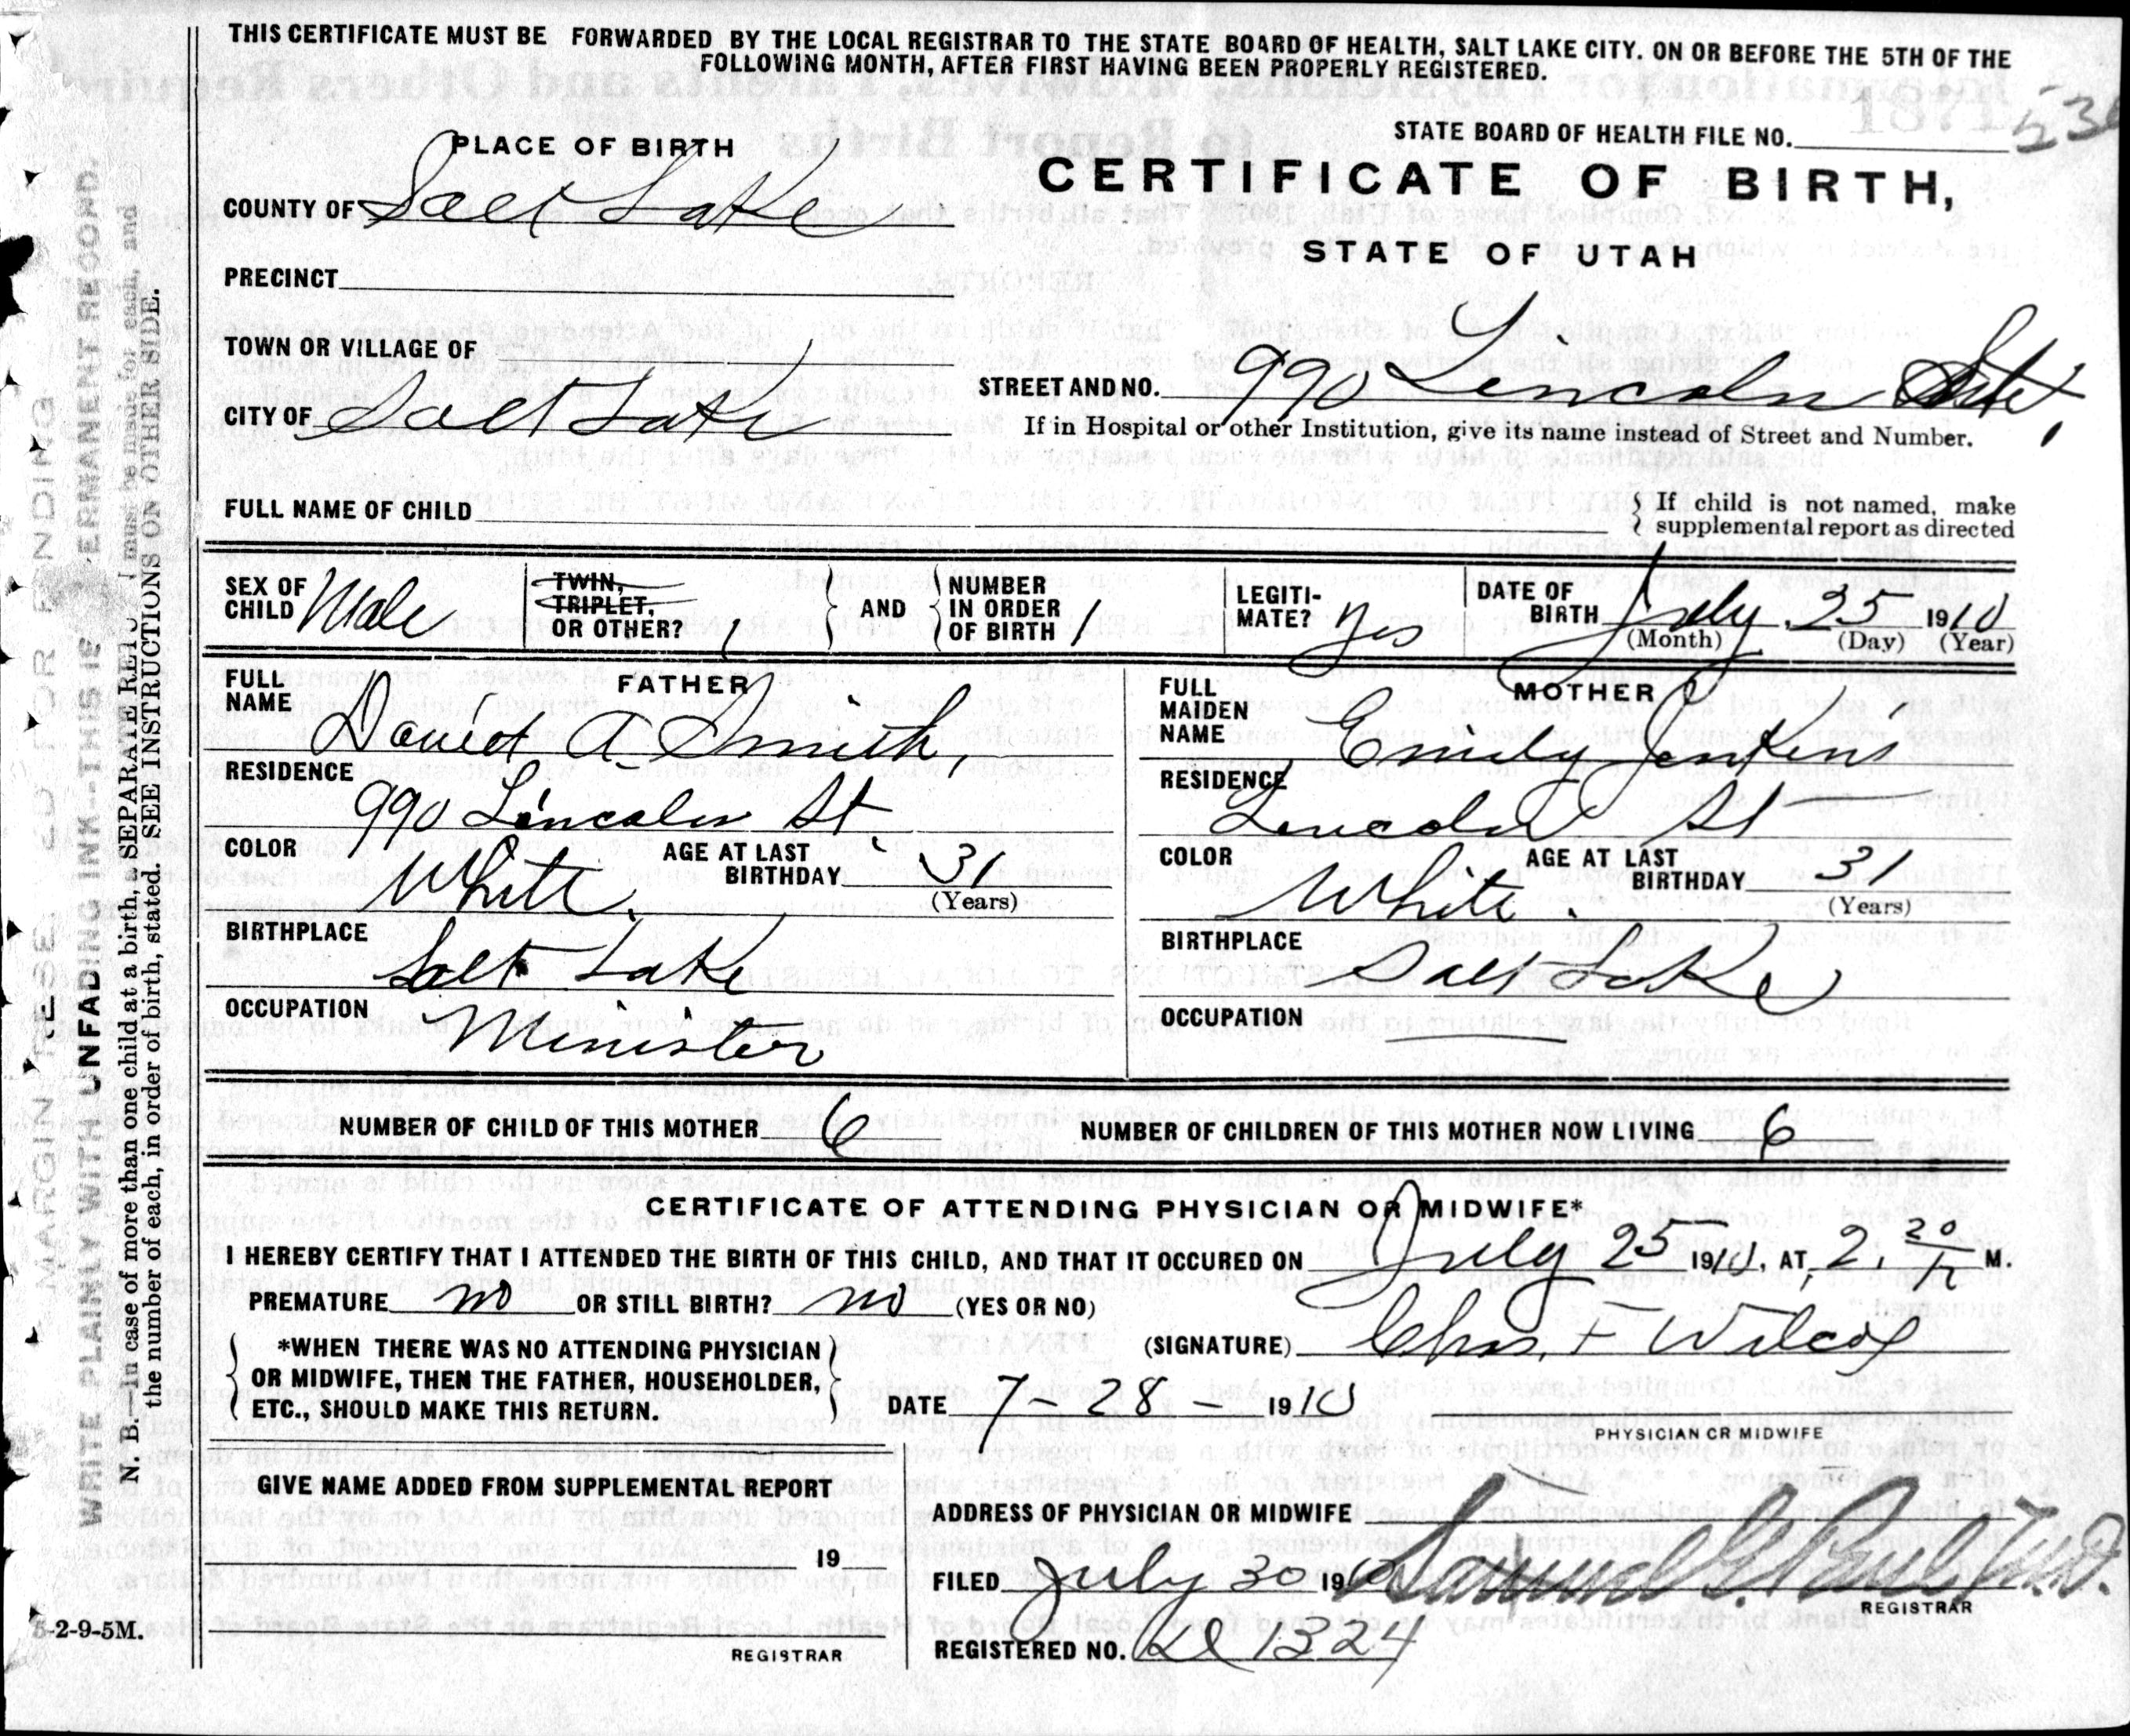 THIS CERTIFICATE MUST BE FORWARDED BY THE LOCAL REGISTRAR TO THE STATE BOARD OF HEALTH, SALT LAKE CITY. ON OR BEFORE THE 5TH OF THE
FOLLOWING MONTH, AFTER FIRST HAVING BEEN PROPERLY REGISTERED.
STATE BOARD OF HEALTH FILE NO.
PLACE OF BIRTH
CERTIFICATE OF BIRTH,
COUNTY OF Salt Lake
STATE OF UTAH
PRECINCT
TOWN OR VILLAGE OF
STREET AND NO. 990 Lincoln
CITY OF Salt Lake
If in Hospital or other Institution, give its name instead of Street and Number.
FULL NAME OF CHILD
If child is not named, make
supplemental report as directed
SEX OF CHILD Male
TWIN, TRIPLET, OR OTHER? 1
AND NUMBER IN ORDER OF BIRTH 1
LEGITI-MATE? Yes
DATE OF BIRTH July 25 1910
(Month) (Day) (Year)
FATHER
FULL NAME David A Smith,
RESIDENCE
990 Lincoln St.
COLOR White. AGE AT LAST BIRTHDAY 31
(Years)
BIRTHPLACE
Salt Lake
OCCUPATION
Minister
MOTHER
FULL MAIDEN NAME Emily Jenkins
RESIDENCE
Lincoln St
COLOR White. AGE AT LAST BIRTHDAY 31
(Years)
BIRTHPLACE
Salt Lake
OCCUPATION
NUMBER OF CHILD OF THIS MOTHER 6 NUMBER OF CHILDREN OF THIS MOTHER NOW LIVING 6
CERTIFICATE OF ATTENDING PHYSICIAN OR MIDWIFE*
I HEREBY CERTIFY THAT I ATTENDED THE BIRTH OF THIS CHILD, AND THAT IT OCCURED ON July 25 1910, AT 2, M.
PREMATURE no OR STILL BIRTH? no (YES OR NO)
*WHEN THERE WAS NO ATTENDING PHYSICIAN
OR MIDWIFE, THEN THE FATHER, HOUSEHOLDER,
ETC., SHOULD MAKE THIS RETURN.
(SIGNATURE) Chas. F Wilcox
DATE 7-28-1910
PHYSICIAN OR MIDWIFE
GIVE NAME ADDED FROM SUPPLEMENTAL REPORT
19
REGISTRAR
ADDRESS OF PHYSICIAN OR MIDWIFE
FILED July 30 1910 Samuel G. Paul M.D.
REGISTRAR
REGISTERED NO. 1324
5-2-9-5M.
WRITE PLAINLY WITH UNFADING INK--THIS IS PERMANENT RECORD.
N. B.—In case of more than one child at a birth, a SEPARATE must be made for each, and
the number of each, in order of birth, stated. SEE INSTRUCTIONS ON OTHER SIDE.